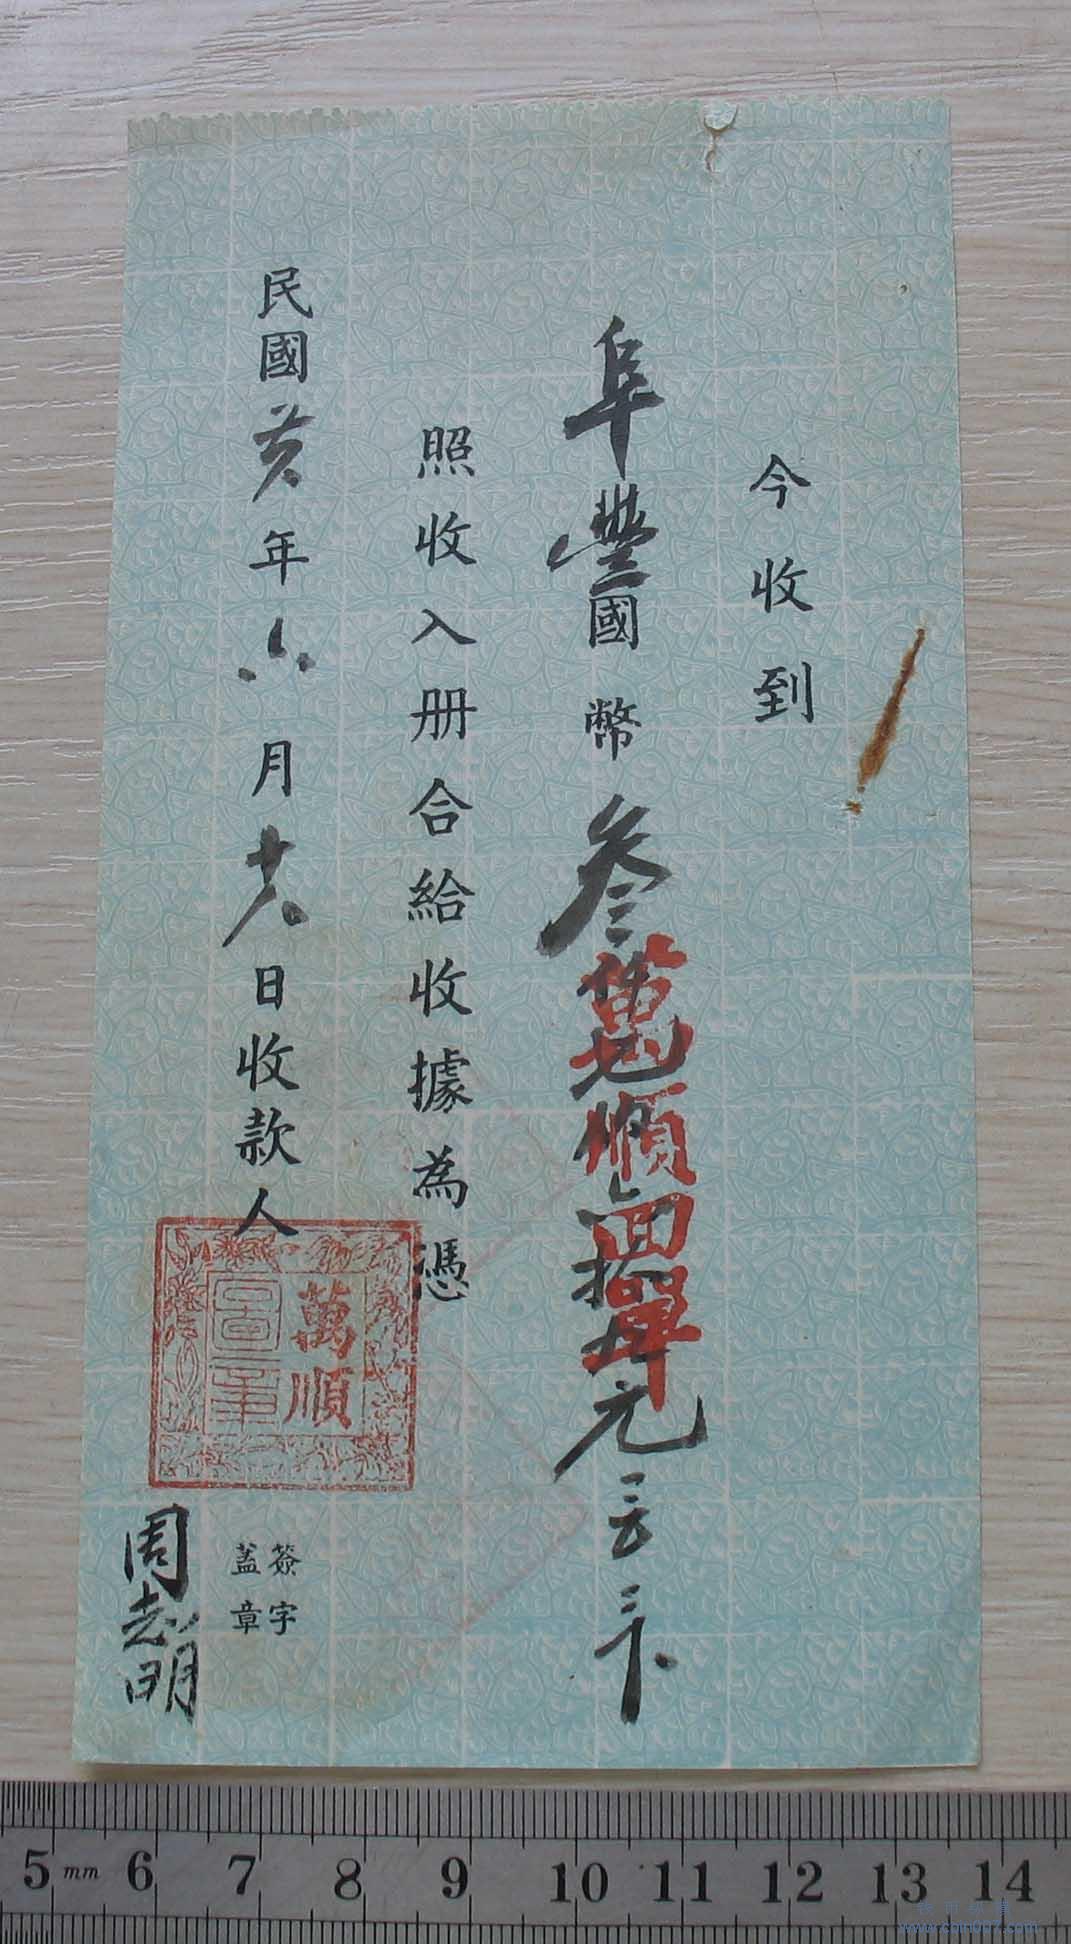 今收到
阜豐國幣叁
萬順回單
拾
元
照收入册合給收據為憑
民國
年六月十六日收款人
萬順
圖章
簽字
蓋章
周志明
5 mm 6 7 8 9 10 11 12 13 14
www.coin007.com